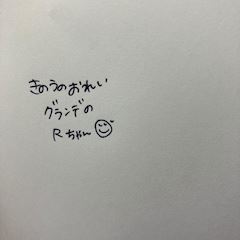 きのうのおれい
グランデの
Rちゃん